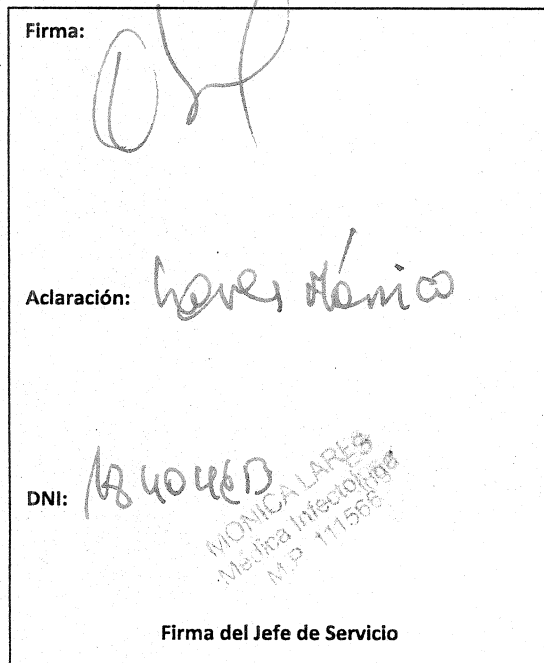 Firma:
Aclaración: Lares Mónica
DNI:
MONICA LARES
Médica Infectóloga
M.P. 111566
Firma del Jefe de Servicio